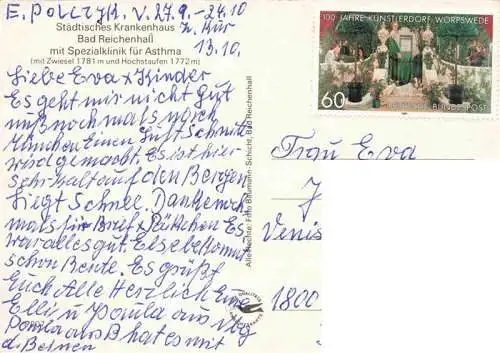 E. Polczyk. V. 27.9. - 24.10
z. Kur
13.10.
Städtisches Krankenhaus
Bad Reichenhall
mit Spezialklinik für Asthma
(mit Zwiesel 1781 m und Hochstaufen 1772 m)
Liebe Eva + Kinder
Es geht mir nicht gut
muß nochmals nach
München Einen Luft Schnitt
wird gemacht. Es ist hier
sehr kalt auf den Bergen
liegt Schnee. Danke noch
mals für Brief + Päckchen Es
war alles gut. Else bekommt
schon Rente. Es grüßt
Euch Alle Herzlich Eure
Elli u
aus
mit
d.
Alleinrechte: Foto Baumann-Schicht, Bad Reichenhall
100 JAHRE KÜNSTLERDORF WORPSWEDE
60
DEUTSCHE BUNDESPOST
Frau Eva
J
Venis
1800